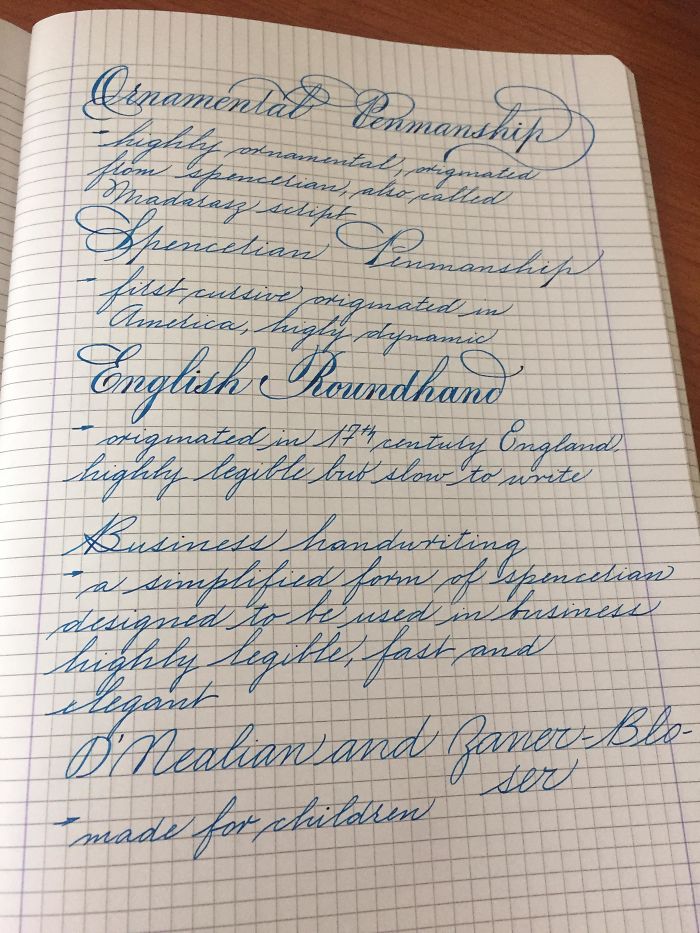 Ornamental Penmanship
- highly ornamental, originated
from spencerian, also called
Madarasz script
Spencerian Penmanship
- first cursive originated in
America, higly dynamic
English Roundhand
- originated in 17th century England,
highly legible but slow to write
Business handwriting
- a simplified form of spencerian
designed to be used in business
highly legible, fast and
elegant
D'Nealian and Zaner-Blo-
ser
- made for children